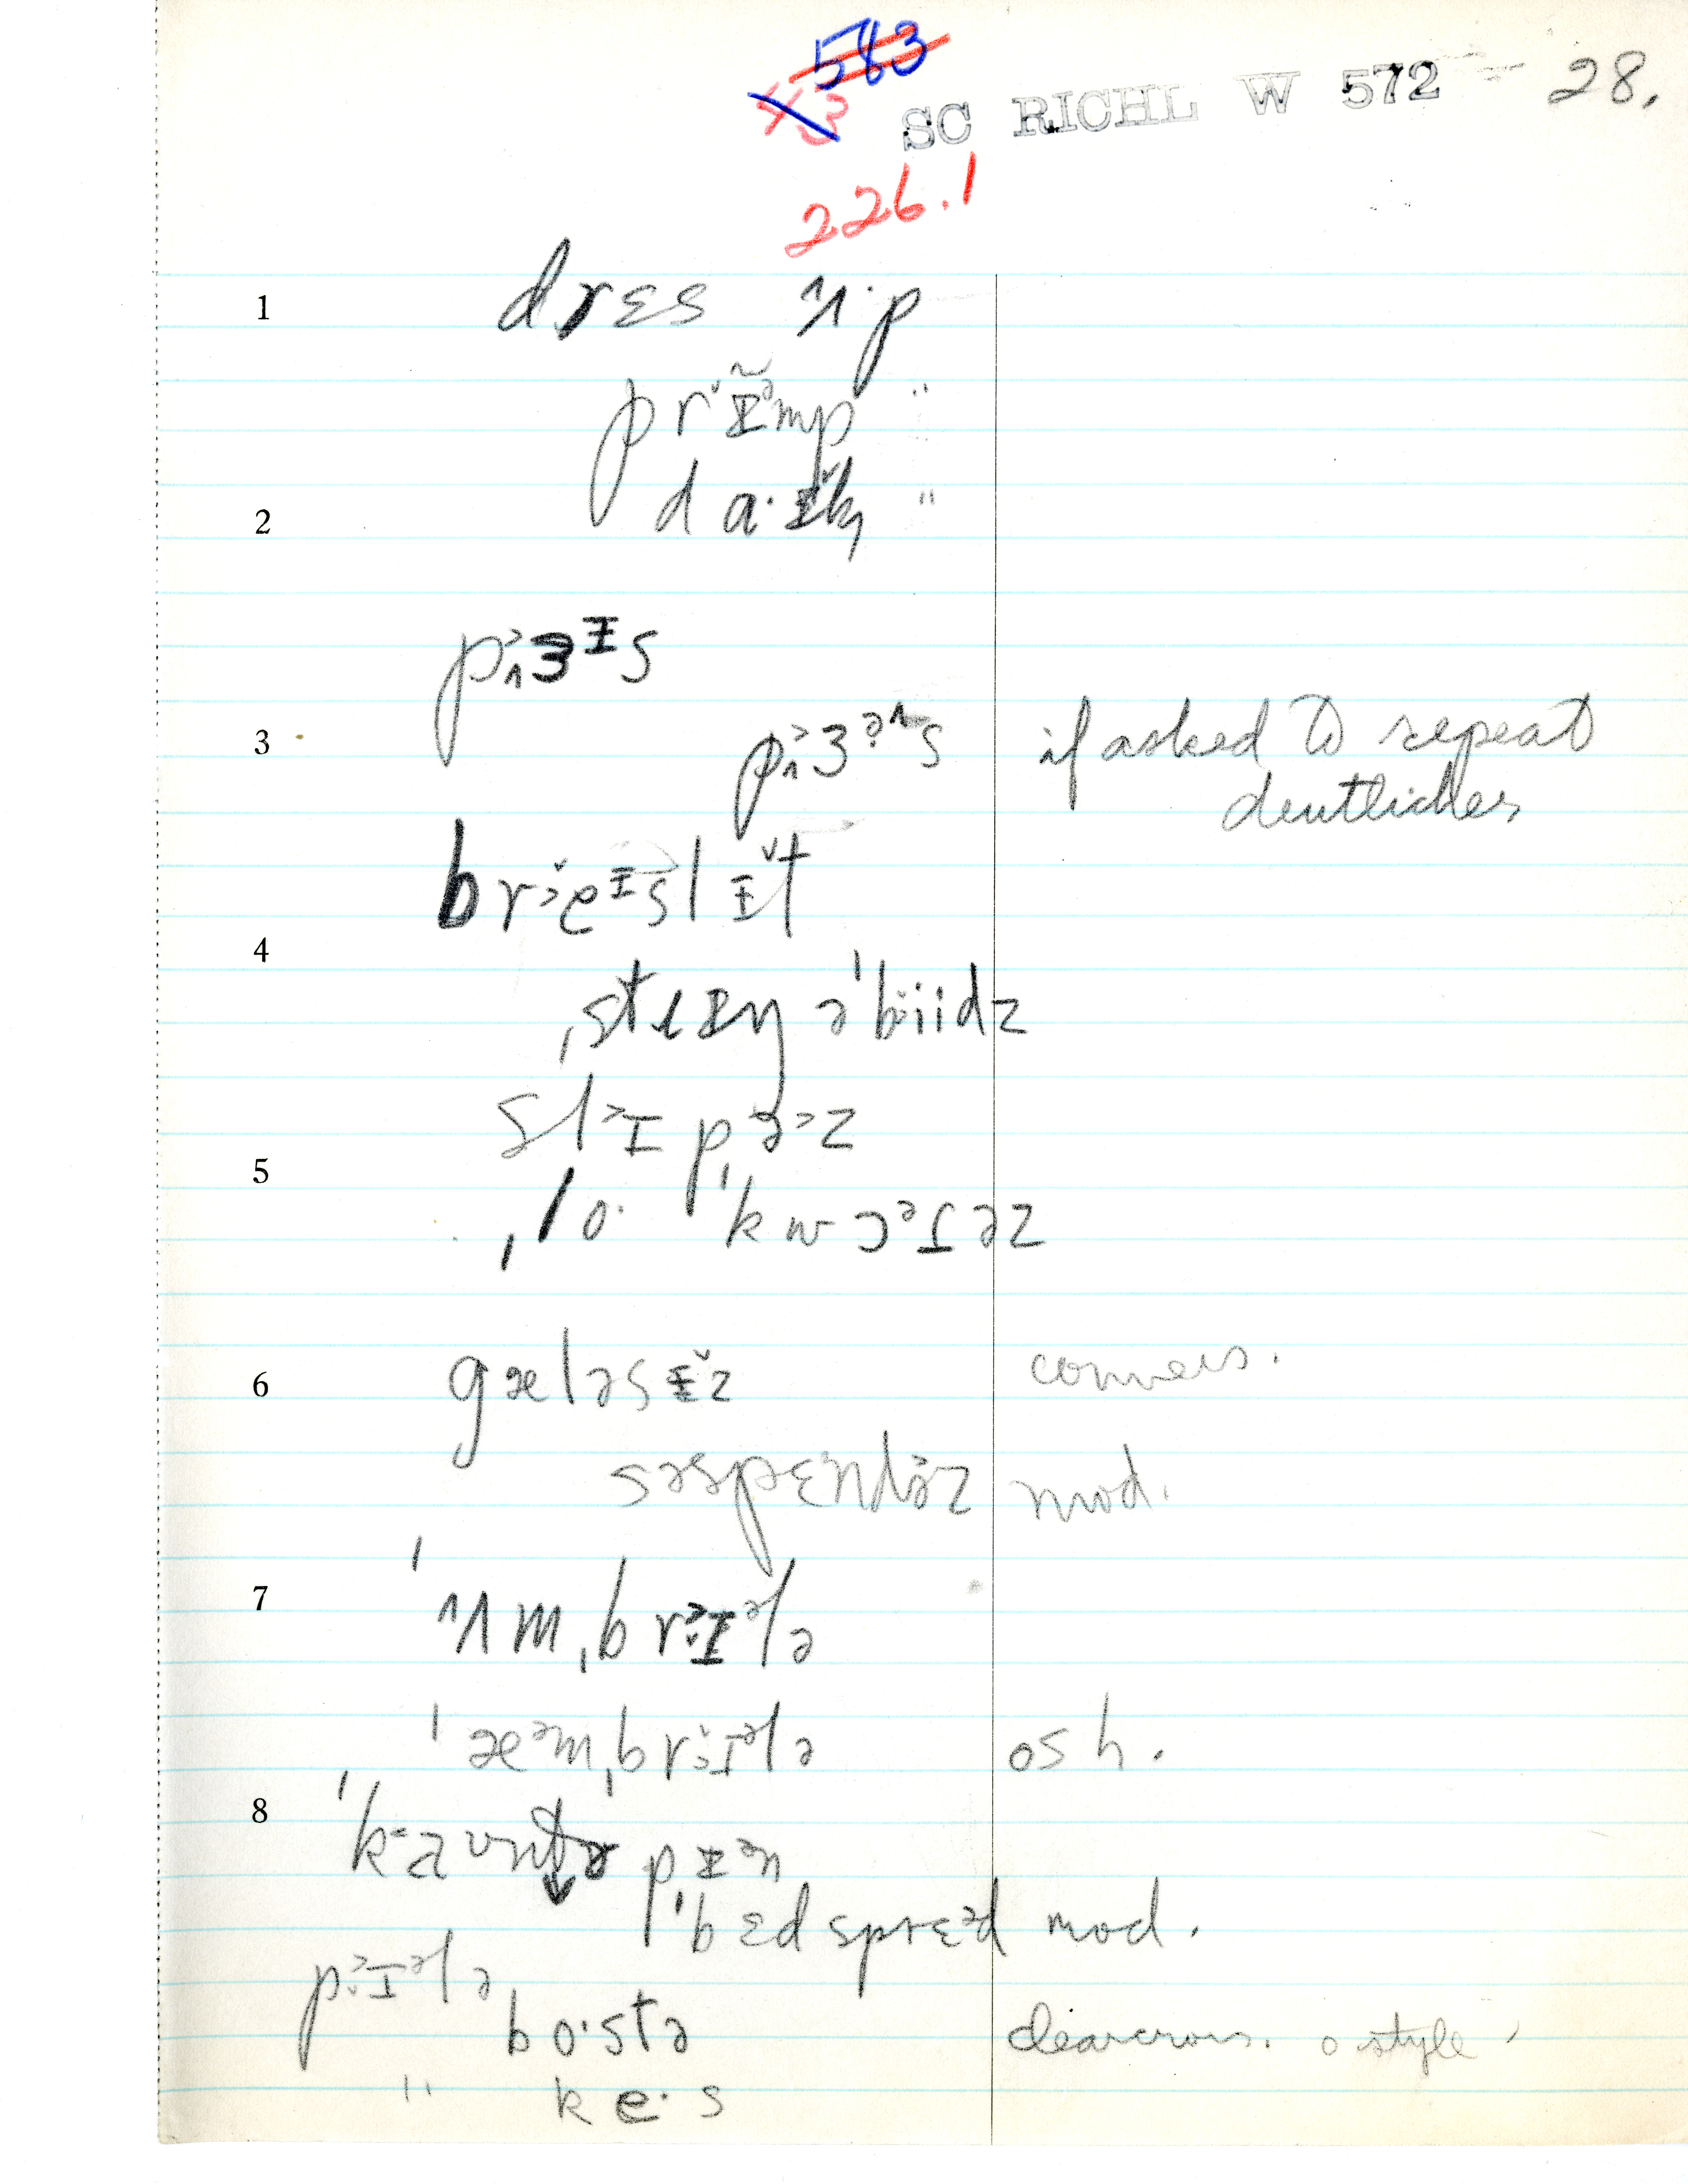 583
43
SC RICHL W 572 28.
226.1
1 drɛs ʌ·p
prɨ̃ᵊmp "
2 d a·ɨk "
pɜᵻs
3 pɜᵊʌs if asked to repeat
deutliches
breᵻslɨt
4 ˌstrɨŋ əˈbiidz
slɪpəz
5 ˌlo· ˈkwɔᵊɪəz
6 gæləsɨz convers.
səspɛndəz mod.
7 ˈʌmˌbrɪᵊlə
ˈæᵊmˌbrɪᵊlə os h.
8 ˈkaʊntə pɨᵊn
ˈbɛdsprɛᵊd mod.
pɪᵊlə
bo·stə o style
" ke·s